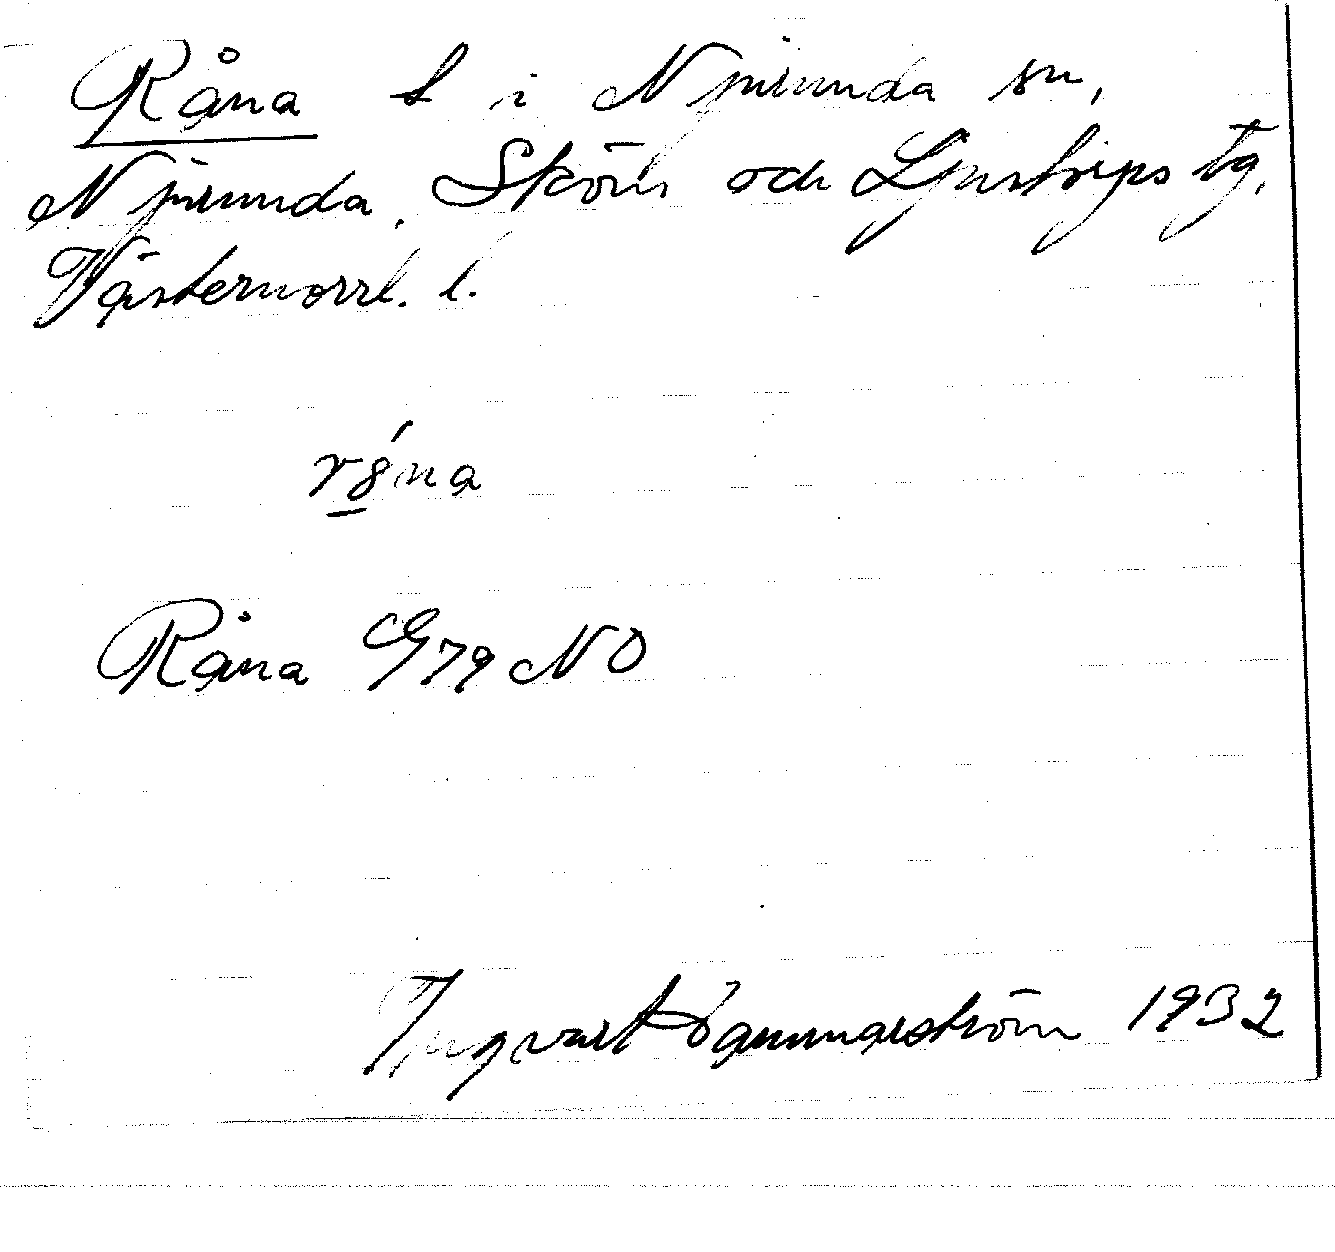 Råna s i Njurunda sn,
Njurunda, Sköns och Ljustorps tg,
Västernorrl. l.
rána
Råna G79 NO
Ingvart Hammarström 1932